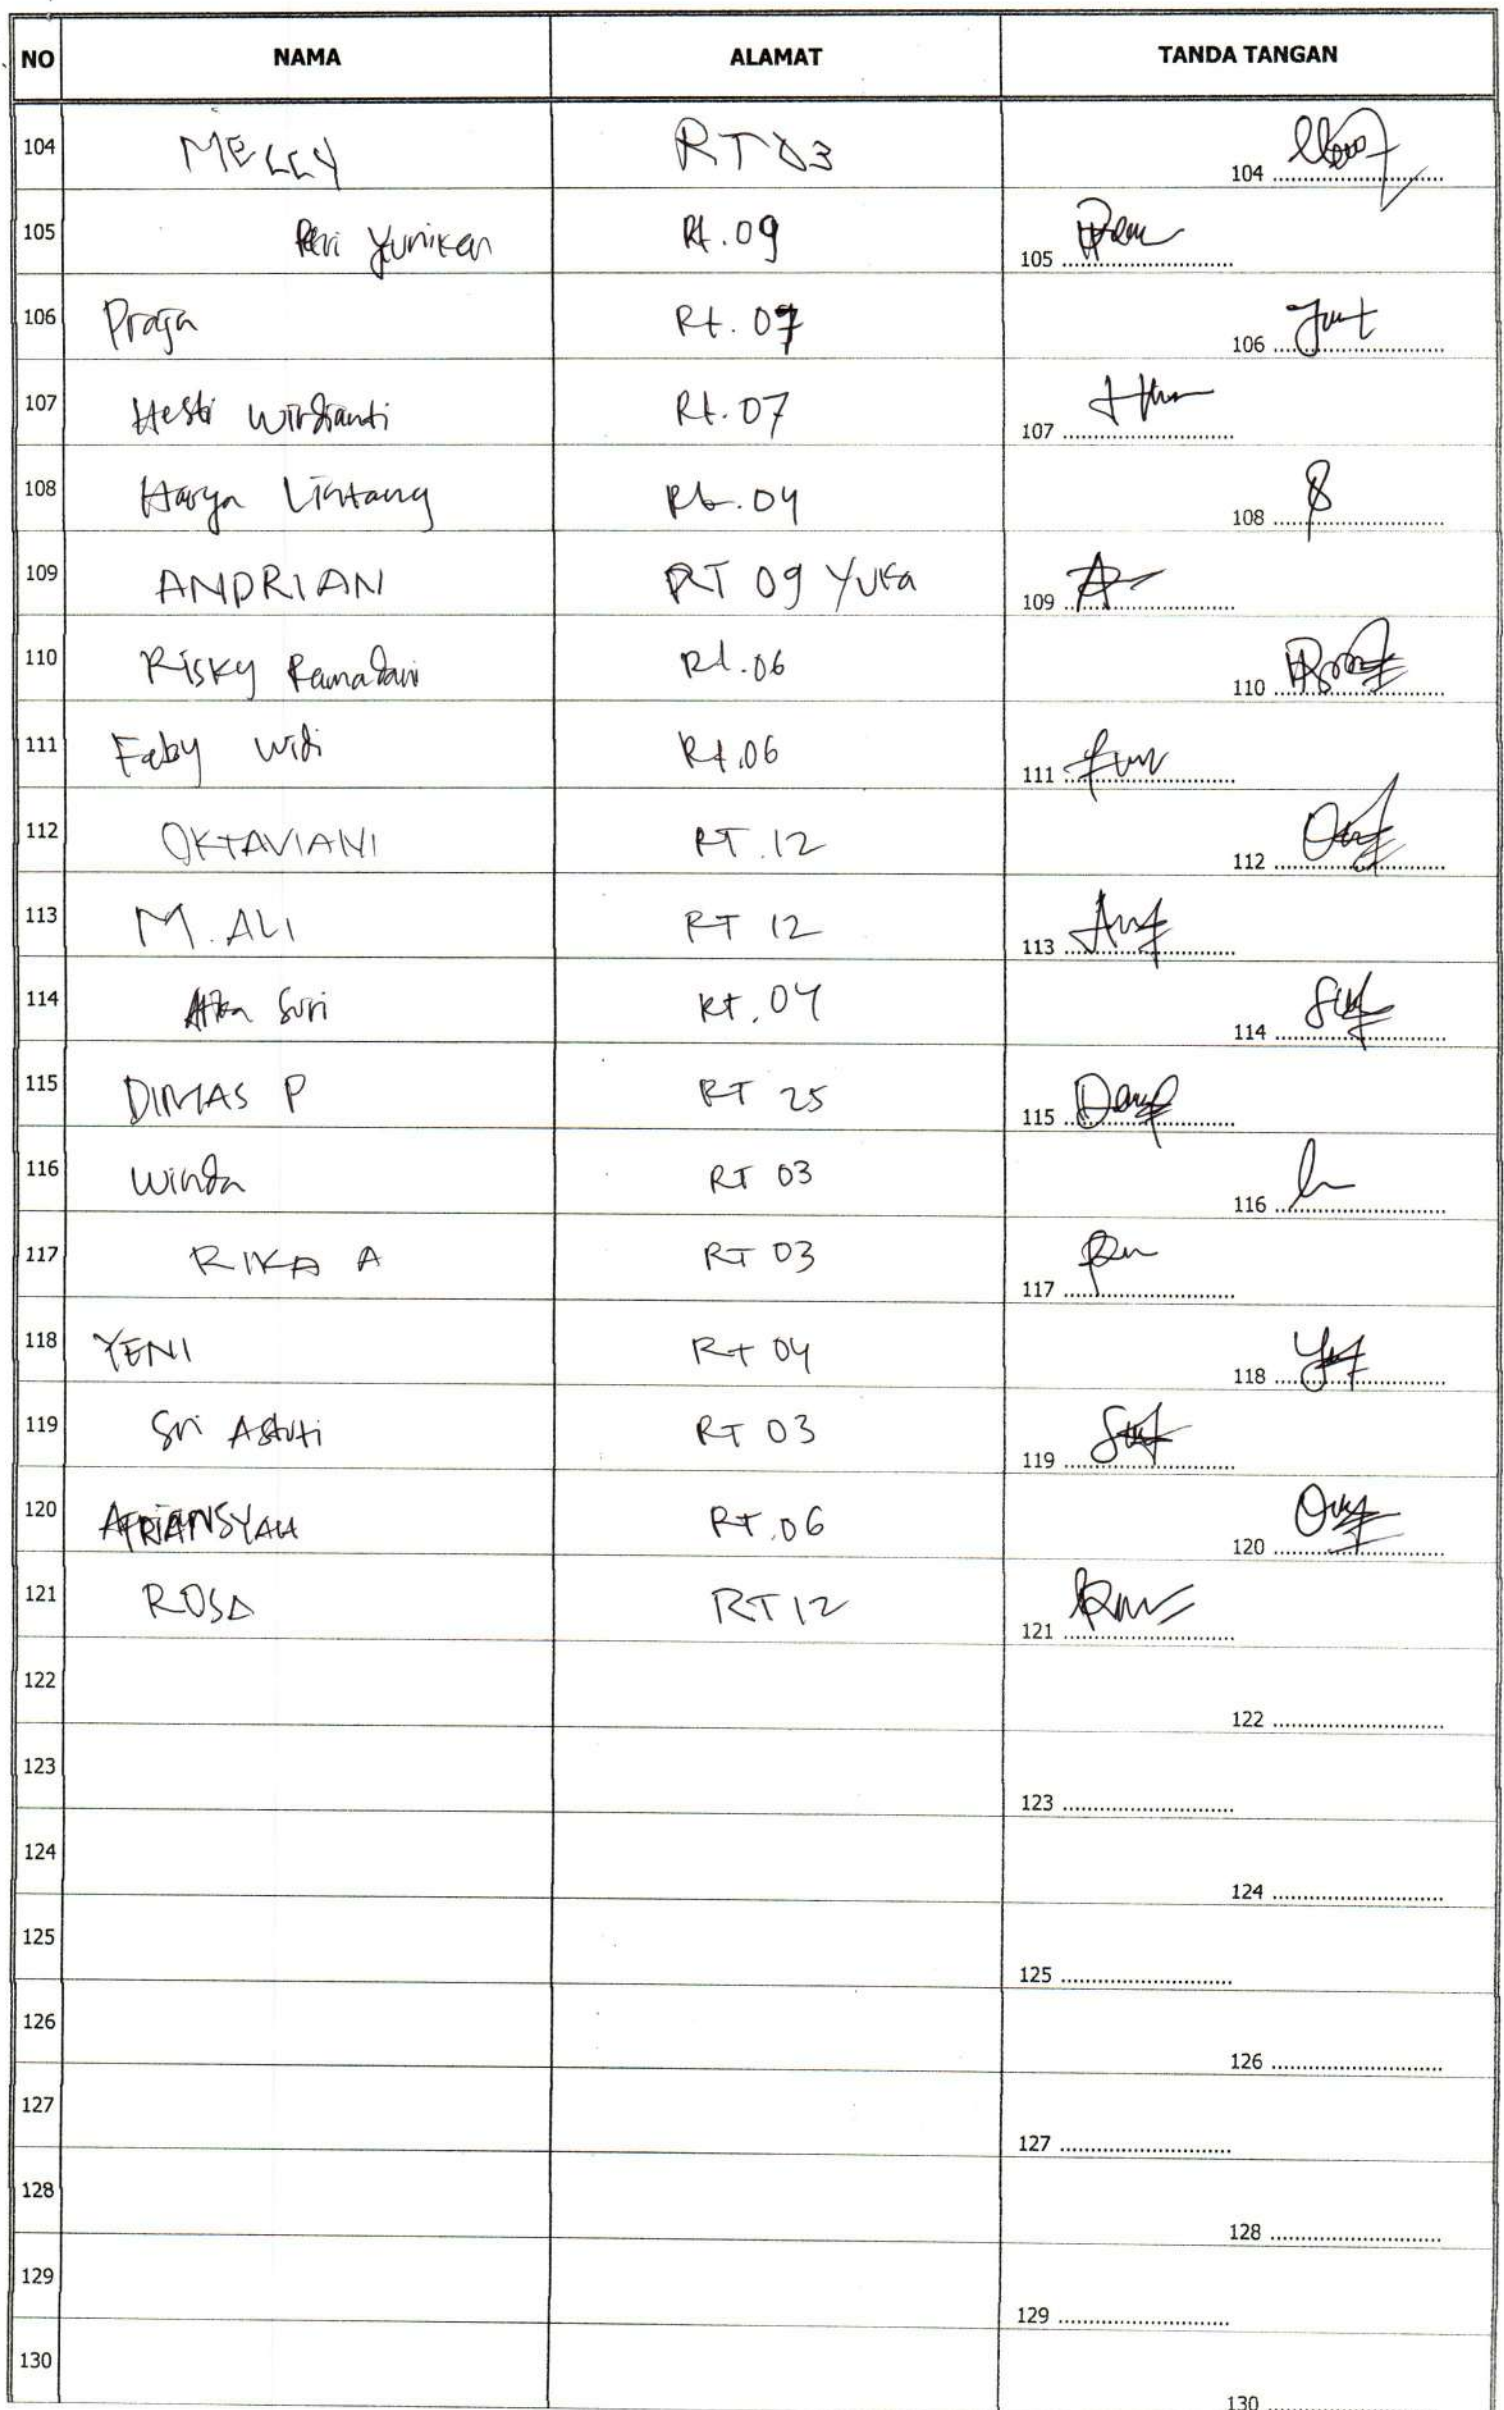 NO NAMA ALAMAT TANDA TANGAN
104 MELLY RT 03 104
105 Yuniken Rt.09 105
106 Praja Rt. 07 106
107 Hesti Wirdianti Rt.07 107
108 Harya Lintang Rt.04 108
109 ANDRIAN RT 09 Yuka 109
110 Risky Ramadani Rt.06 110
111 Feby Widi Rt.06 111
112 OKTAVIANI RT.12 112
113 M. ALI RT 12 113
114 Suri Rt.04 114
115 DIMAS P RT 25 115
116 Winda RT 03 116
117 RIKA A RT 03 117
118 YENI Rt 04 118
119 Sri Astuti RT 03 119
120 RT.06 120
121 ROSA RT 12 121
122 122
123 123
124 124
125 125
126 126
127 127
128 128
129 129
130 130